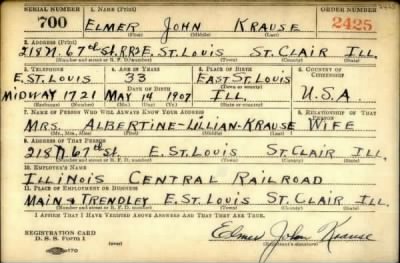 SERIAL NUMBER 1. NAME (Print) ORDER NUMBER
700 ELMER JOHN KRAUSE 2425
(First) (Middle) (Last)
2. ADDRESS (Print)
218 N. 67th St. RR3 E. ST. LOUIS ST. CLAIR ILL.
(Number and street or R. F. D. number) (Town) (County) (State)
3. TELEPHONE 4. AGE IN YEARS 5. PLACE OF BIRTH 6. COUNTRY OF CITIZENSHIP
E. ST. LOUIS 33 EAST ST. LOUIS
DATE OF BIRTH (Town or county)
MIDWAY 1721 MAY 14 1907 ILL. U.S.A.
(Exchange) (Number) (Mo.) (Day) (Yr.) (State or country)
7. NAME OF PERSON WHO WILL ALWAYS KNOW YOUR ADDRESS 8. RELATIONSHIP OF THAT PERSON
MRS. ALBERTINE-LILLIAN-KRAUSE WIFE
(Mr., Mrs., Miss) (First) (Middle) (Last)
9. ADDRESS OF THAT PERSON
218 N. 67th St. E. ST. LOUIS ST. CLAIR ILL.
(Number and street or R. F. D. number) (Town) (County) (State)
10. EMPLOYER'S NAME
ILLINOIS CENTRAL RAILROAD
11. PLACE OF EMPLOYMENT OR BUSINESS
MAIN & TRENDLEY E. ST. LOUIS ST. CLAIR ILL.
(Number and street or R. F. D. number) (Town) (County) (State)
I AFFIRM THAT I HAVE VERIFIED ABOVE ANSWERS AND THAT THEY ARE TRUE.
REGISTRATION CARD
D. S. S. Form 1 Elmer John Krause
(Registrant's signature)